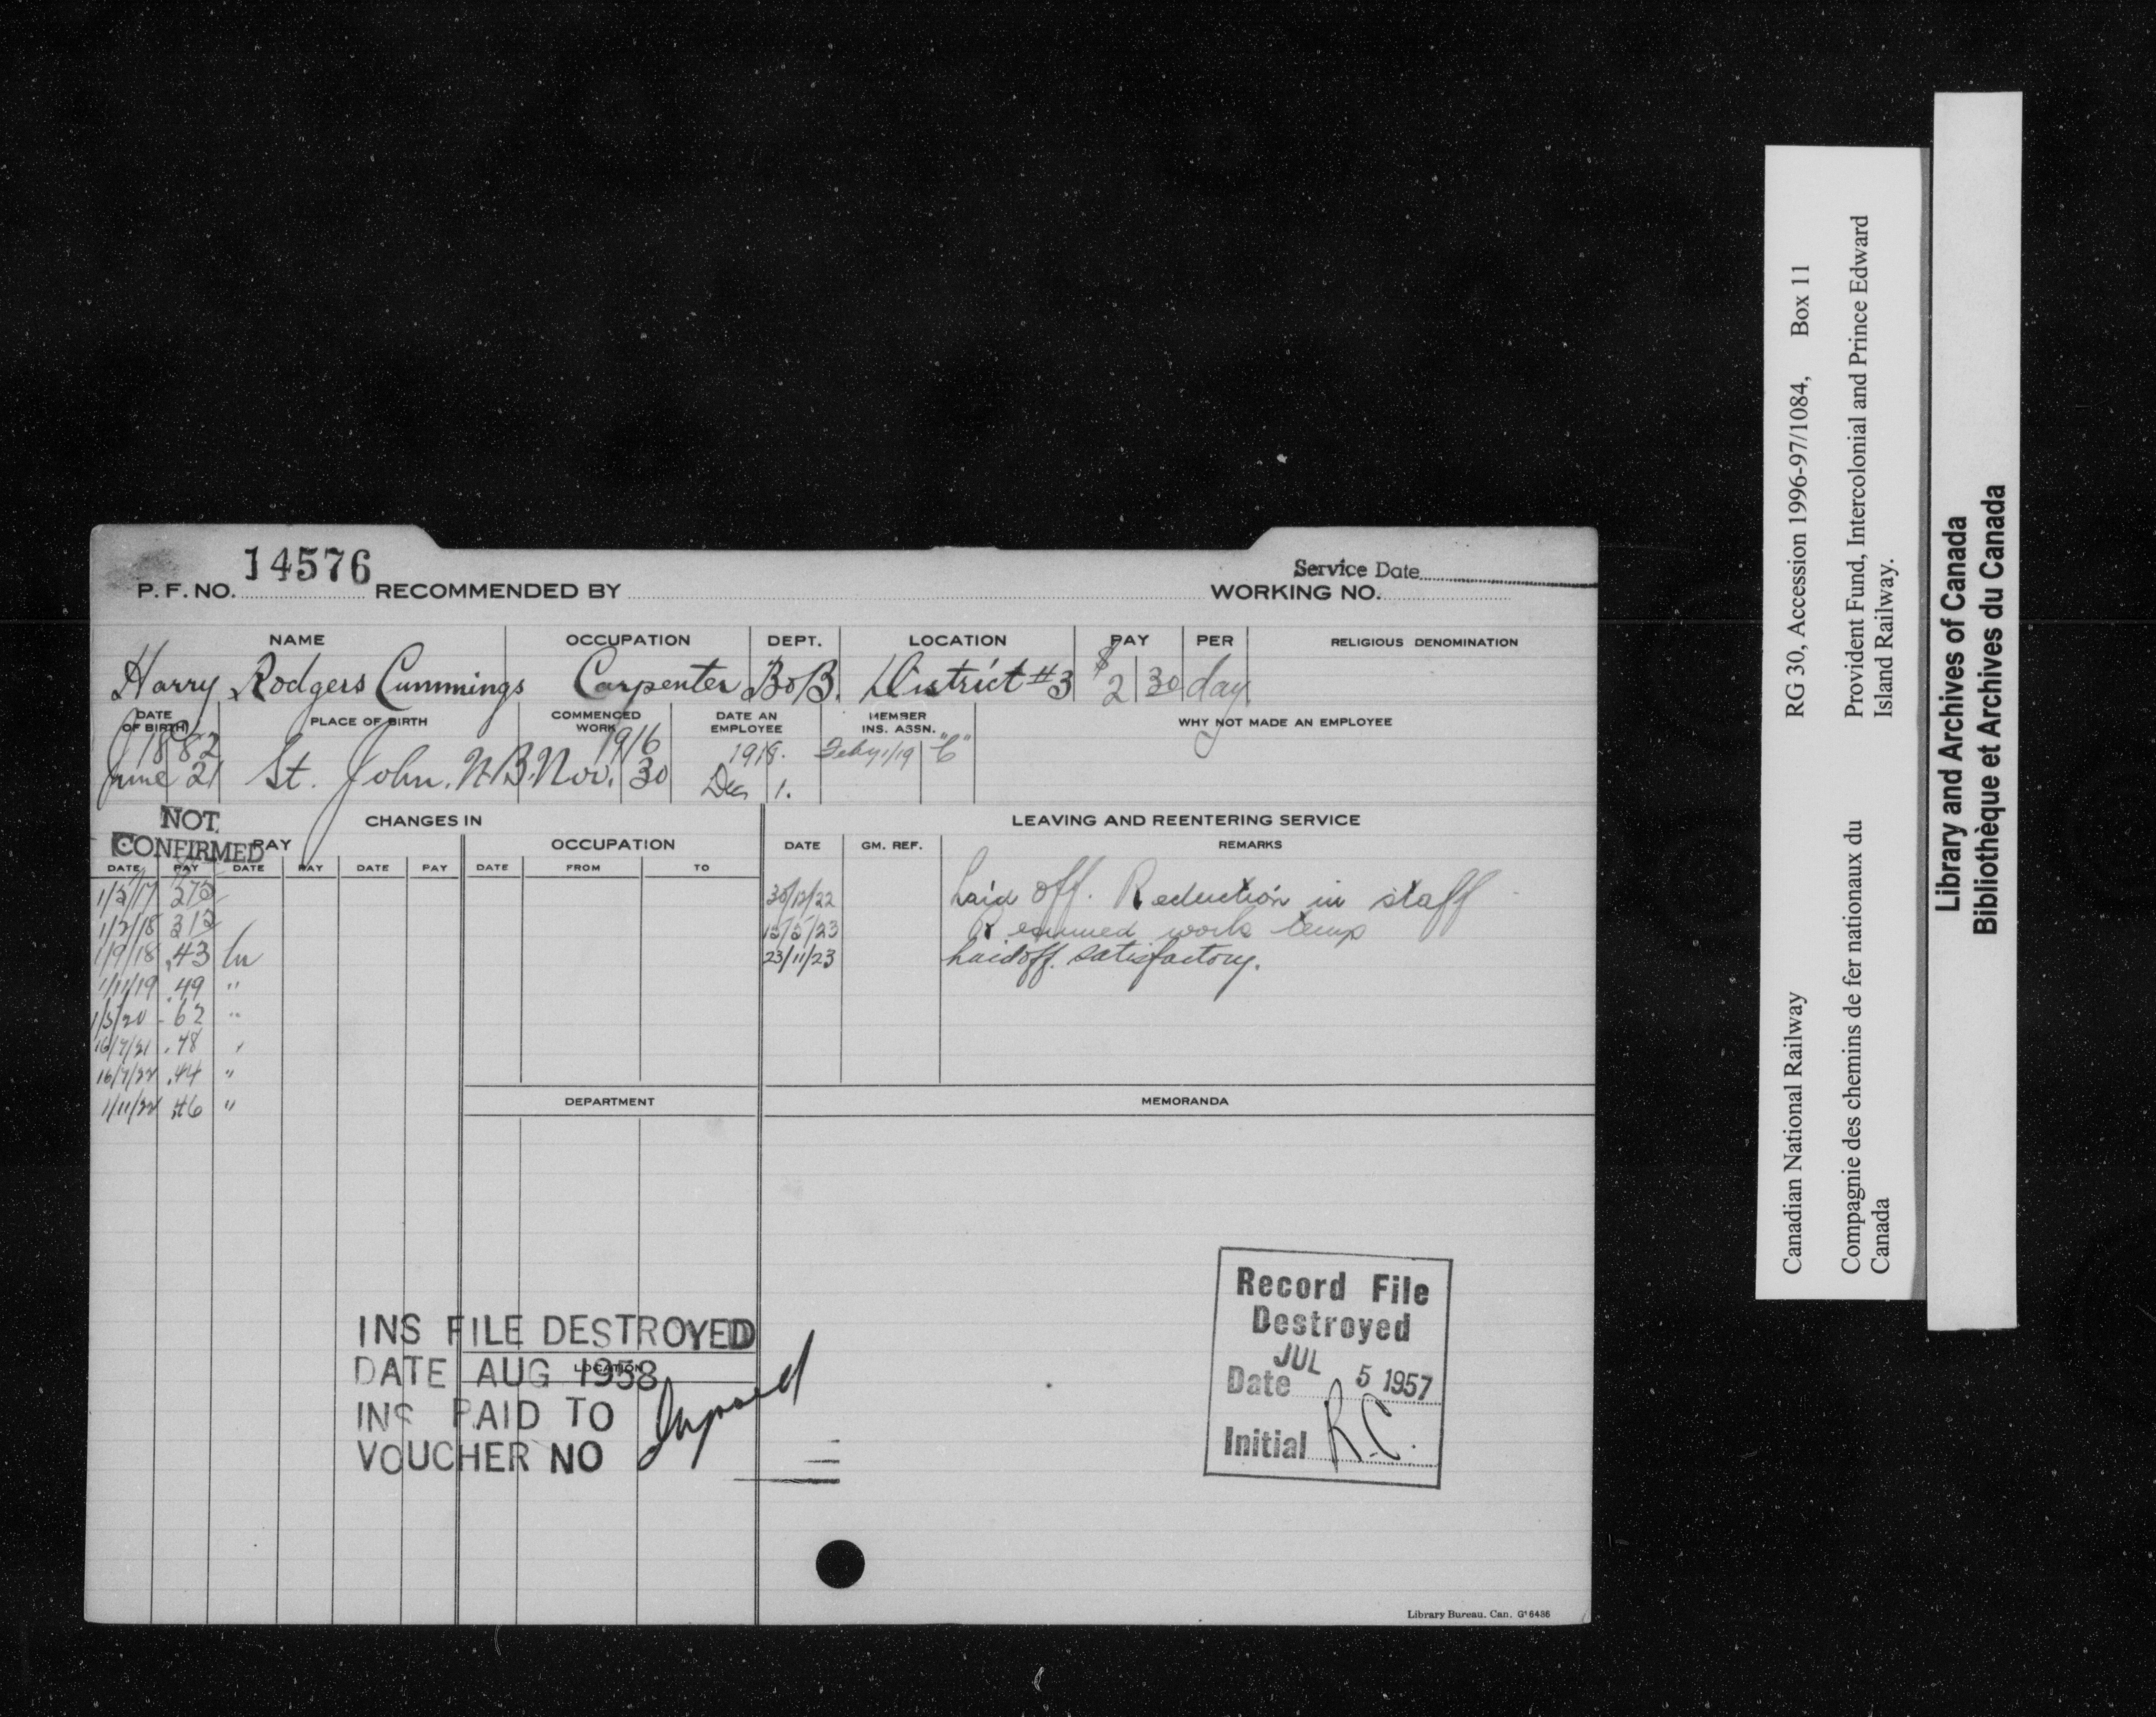 14576
Service Date
P. F. NO. RECOMMENDED BY WORKING NO.
NAME OCCUPATION DEPT. LOCATION PAY PER RELIGIOUS DENOMINATION
Harry Rodgers Cummings Carpenter B&B. District #3 $2 30 day
DATE OF BIRTH PLACE OF BIRTH COMMENCED WORK DATE AN EMPLOYEE MEMBER INS. ASSN. WHY NOT MADE AN EMPLOYEE
1882 1916 1918. Feby 1/19 "C"
June 21 St. John. N.B. Nov. 30 Dec 1.
NOT CONFIRMED
CHANGES IN LEAVING AND REENTERING SERVICE
PAY OCCUPATION DATE GM. REF. REMARKS
DATE PAY DATE PAY DATE PAY DATE FROM TO
1/5/17 275 30/12/22 Laid off. Reduction in staff
1/2/18 312 15/5/23 Resumed work temp
1/9/18 .43 hr 23/11/23 Laid off. Satisfactory.
1/11/19 .49 "
1/5/20 .62 "
16/7/21 .48 "
16/7/22 .44 "
1/11/22 .46 "
DEPARTMENT MEMORANDA
LOCATION
INS FILE DESTROYED
DATE AUG 1958
INS PAID TO
VOUCHER NO
Lapsed
Record File
Destroyed
Date JUL 5 1957
Initial R.C.
Library Bureau. Can. G'6486
Canadian National Railway RG 30, Accession 1996-97/1084, Box 11
Compagnie des chemins de fer nationaux du Canada
Provident Fund, Intercolonial and Prince Edward Island Railway.
Library and Archives of Canada
Bibliothèque et Archives du Canada